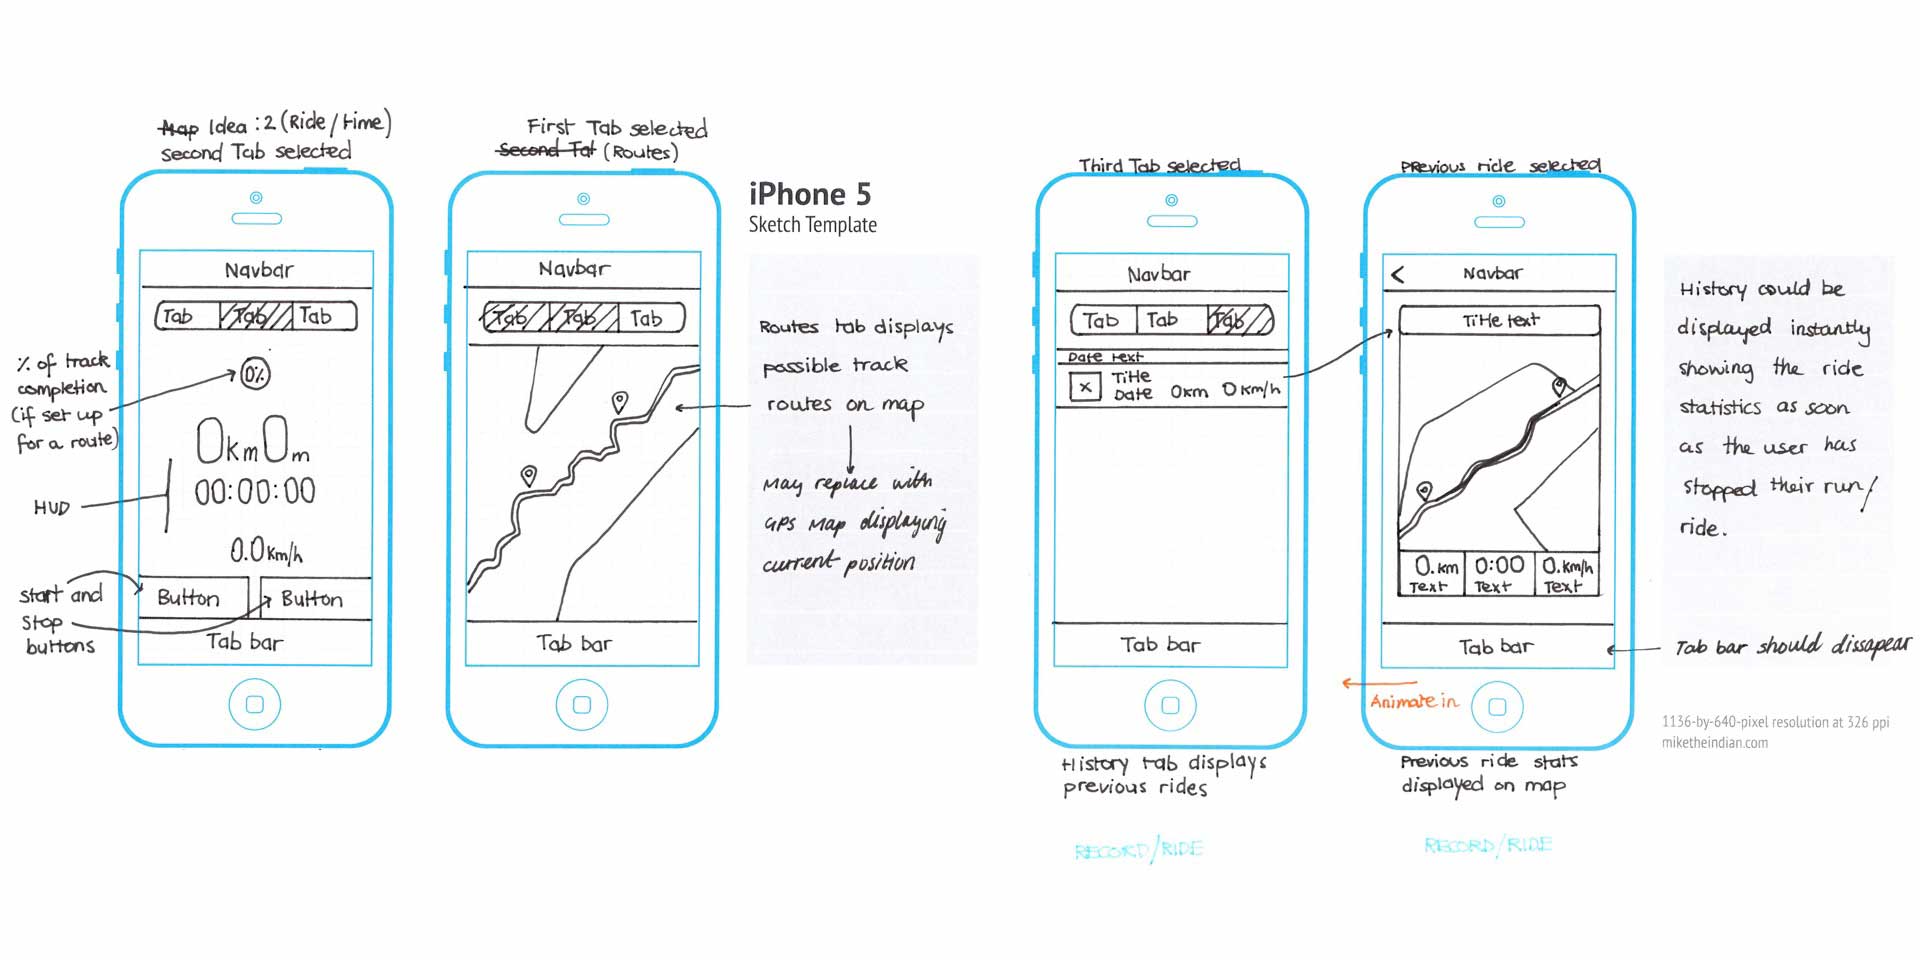 Map Idea : 2 (Ride/time)
Second Tab selected
Navbar
Tab Tab Tab
% of track
completion
(if set up
for a route)
0%
0km 0m
00:00:00
HUD
0.0 km/h
Start and
Stop
buttons
Button Button
Tab bar
First Tab selected
Second Tat (Routes)
Navbar
Tab Tab Tab
Tab bar
iPhone 5
Sketch Template
Routes tab displays
possible track
routes on map
May replace with
GPS Map displaying
current position
Third Tab selected
Navbar
Tab Tab Tab
Date text
x
Title
Date 0km 0km/h
Tab bar
History tab displays
previous rides
RECORD/RIDE
Previous ride selected
< Navbar
Title text
0.km 0:00 0.km/h
Text Text Text
Tab bar
Animate in
Previous ride stats
displayed on map
RECORD/RIDE
History could be
displayed instantly
showing the ride
statistics as soon
as the user has
stopped their run/
ride.
Tab bar should dissapear
1136-by-640-pixel resolution at 326 ppi
miketheindian.com